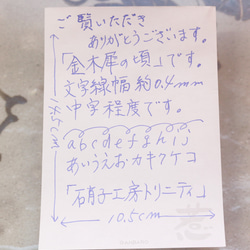 ご覧いただき
ありがとうございます。
「金木犀の頃」です。
文字線幅 約0.4mm
中字程度です。
abcdefghij
あいうえおカキクケコ
「硝子工房トリニティ」
10.5cm
14.5cm